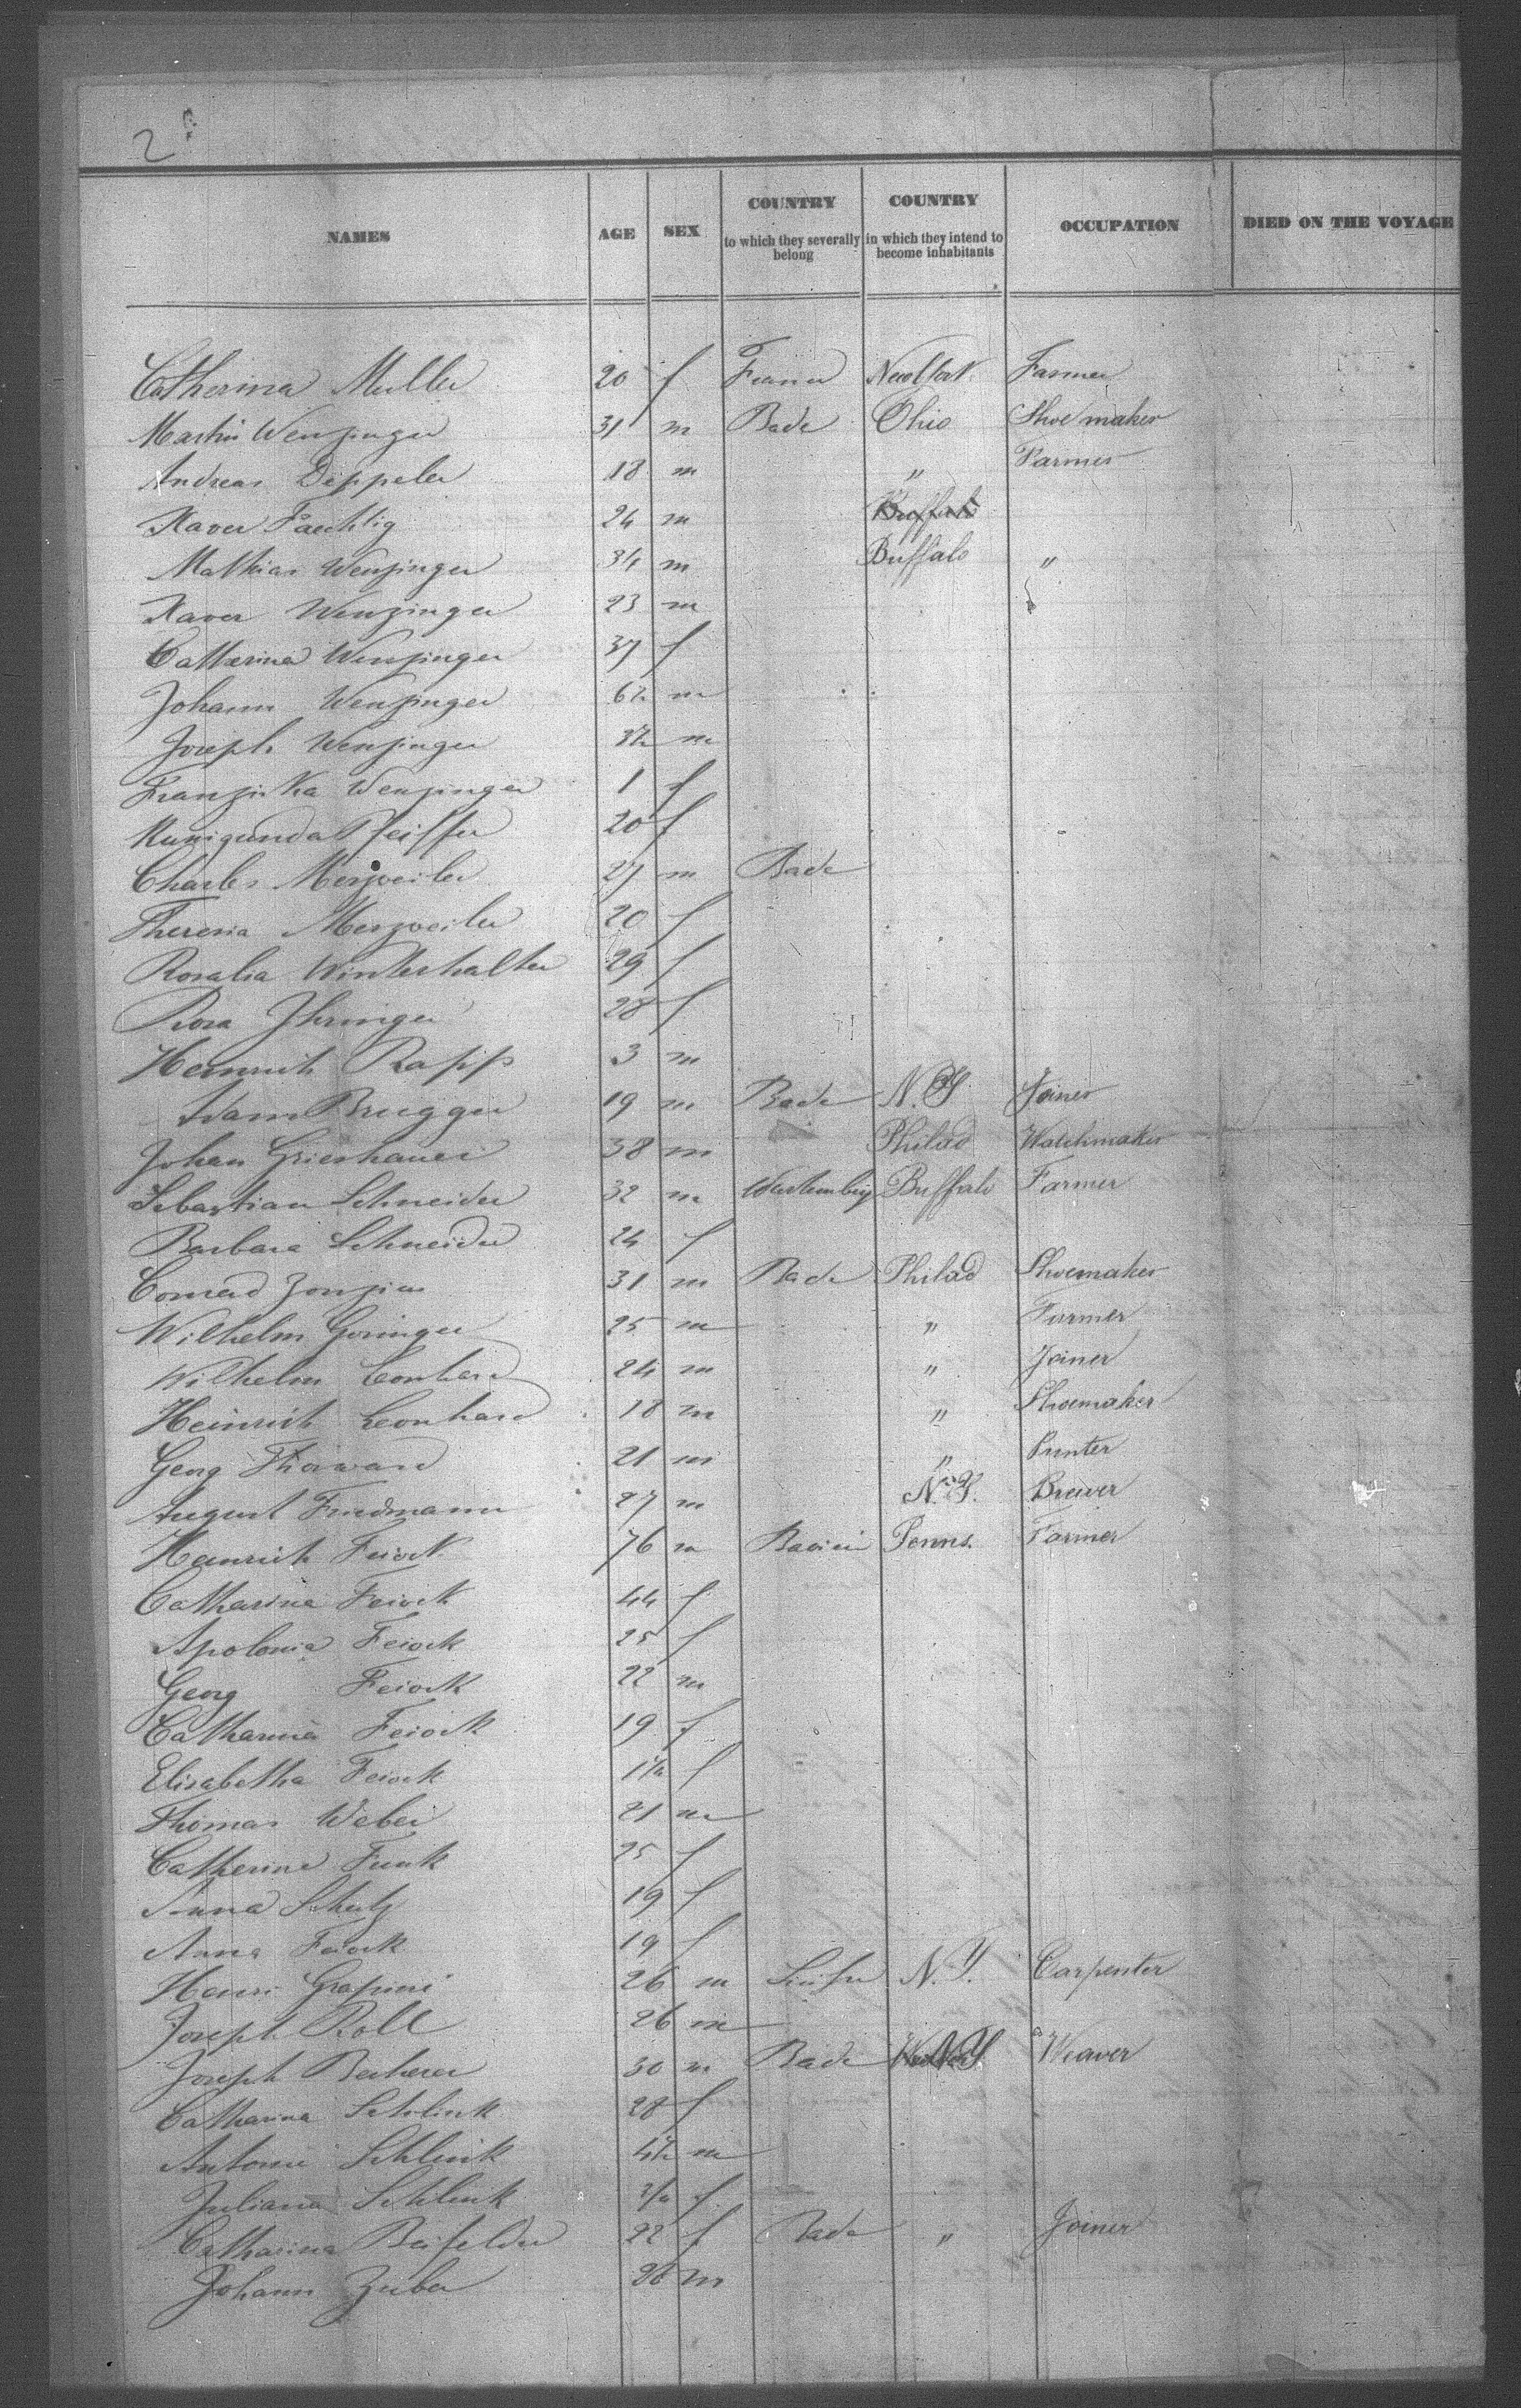 2
NAMES AGE SEX COUNTRY to which they severally belong COUNTRY in which they intend to become inhabitants OCCUPATION DIED ON THE VOYAGE
Catherina Muller 20 f France Farmer
Martin Wenzinger 31 m Bade Ohio Shoemaker
Andreas Deppeler 18 m " Farmer
Xaver Faechtig 24 m Buffalo
Mathias Wenzinger 34 m Buffalo "
Xaver Wenzinger 23 m
Catherina Wenzinger 37 f
Johann Wenzinger 6½ m
Joseph Wenzinger 3½ m
Franziska Wenzinger 1 f
Kunigunda Pfeiffer 20 f
Charles Merzweiler 27 m Bade
Theresia Merzweiler 20 f
Rosalia Winterhalter 29 f
Rosa Ihringer 28 f
Heinrich Rapp 3 m
Adam Brugger 19 m Bade N.Y. Joiner
Johan Grieshauer 38 m Philad Watchmaker
Sebastian Schneider 32 m Wurtemberg Buffalo Farmer
Barbara Schneider 24 f
Conrad 31 m Bade Philad Shoemaker
Wilhelm Goringer 25 m " Farmer
Wilhelm 24 m " Joiner
Heinrich Leonhard 18 m " Shoemaker
Georg Thorward 21 m "
August Friedmann 27 m N.Y. Brewer
Heinrich Feiock 76 m Penns. Farmer
Catharina Feiock 44 f
Apolonia Feiock 25 f
Georg Feiock 22 m
Catharina Feiock 19 f
Elisabetha Feiock f
Thomas Weber 21 m
Catherine Funk 25 f
Anna Schutz 19 f
Anna Feiock 19 f
Henri 26 m N.Y. Carpenter
Joseph Roll 26 m
Joseph Becherer 30 m Bade N.Y. Weaver
Catharina Schlink 28 f
Antoine Schlink 4½ m
Juliana Schlink f
Catharina Beifelder 22 f Bade " Joiner
Johann Zuber 26 m